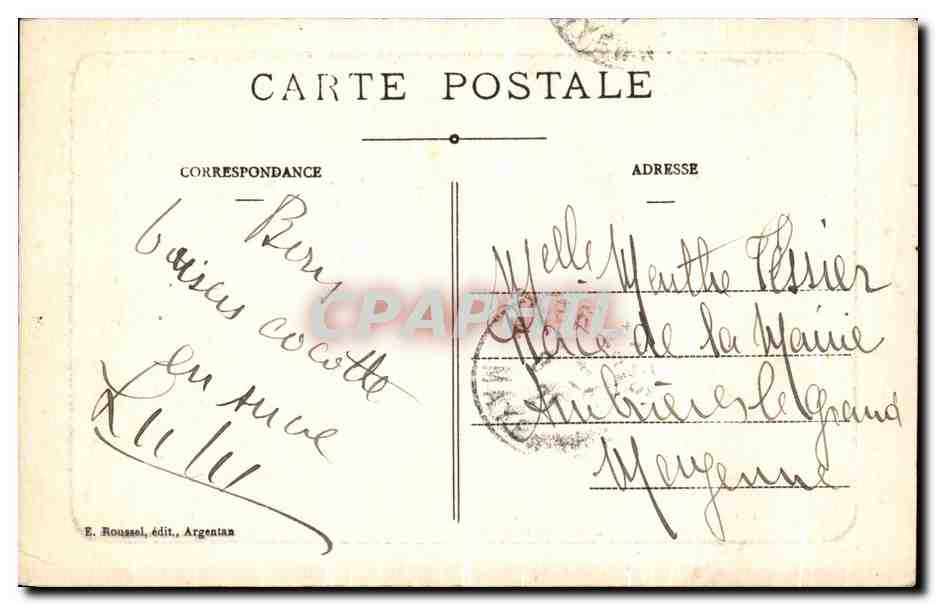 CARTE POSTALE
CORRESPONDANCE
Bons
baisers cocotte
en sucre
Lulu
ADRESSE
Melle Marthe Tessier
Place de la Mairie
Ambrières le grand
Mayenne
E. Roussel, édit., Argentan
CPAPHIL